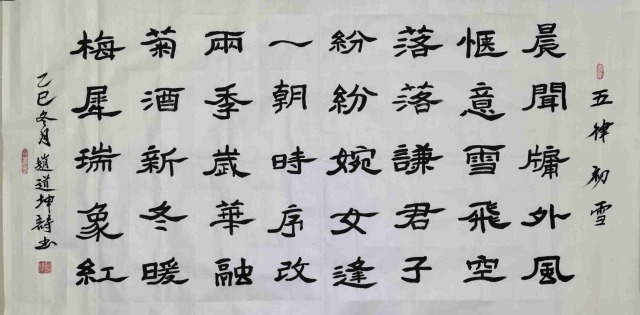 五律初雪
晨聞牖外風
愜意雪飛空
落落謙君子
紛紛婉女逢
一朝時序改
兩季歲華融
菊酒新冬暖
梅犀瑞象紅
乙巳冬月趙道坤詩书